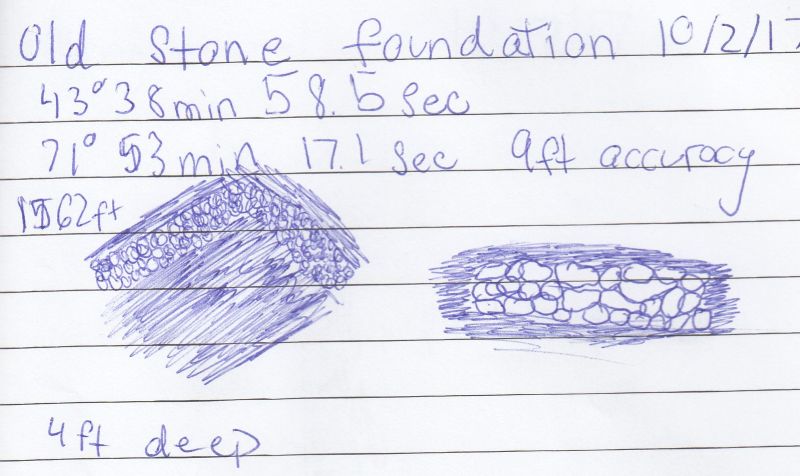 Old Stone foundation 10/2/17
43° 38 min 58.5 sec
71° 53 min 17.1 sec 9ft accuracy
1562ft
4ft deep